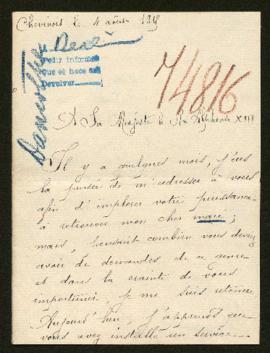 Chevinois le 4 août 191
Real
Pedir informes
que se hace
Devolver
74816
A Sa Majesté le Roi Alphonse XIII
Il y a quelques mois, j'eus
la pensée de m'adresser à vous
afin d'implorer votre puissance
à retrouver mon cher mari;
mais, pensant combien vous deviez
avoir de demandes de ce genre
et dans la crainte de vous
importuner, je me suis retenue
Aujourd'hui, j'apprends que
vous avez installé un service